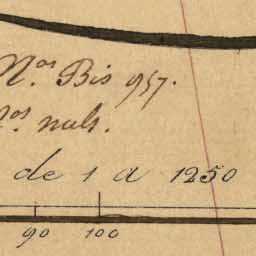 Nos Bis 957.
nos nuls.
de 1 a 1250
90 100